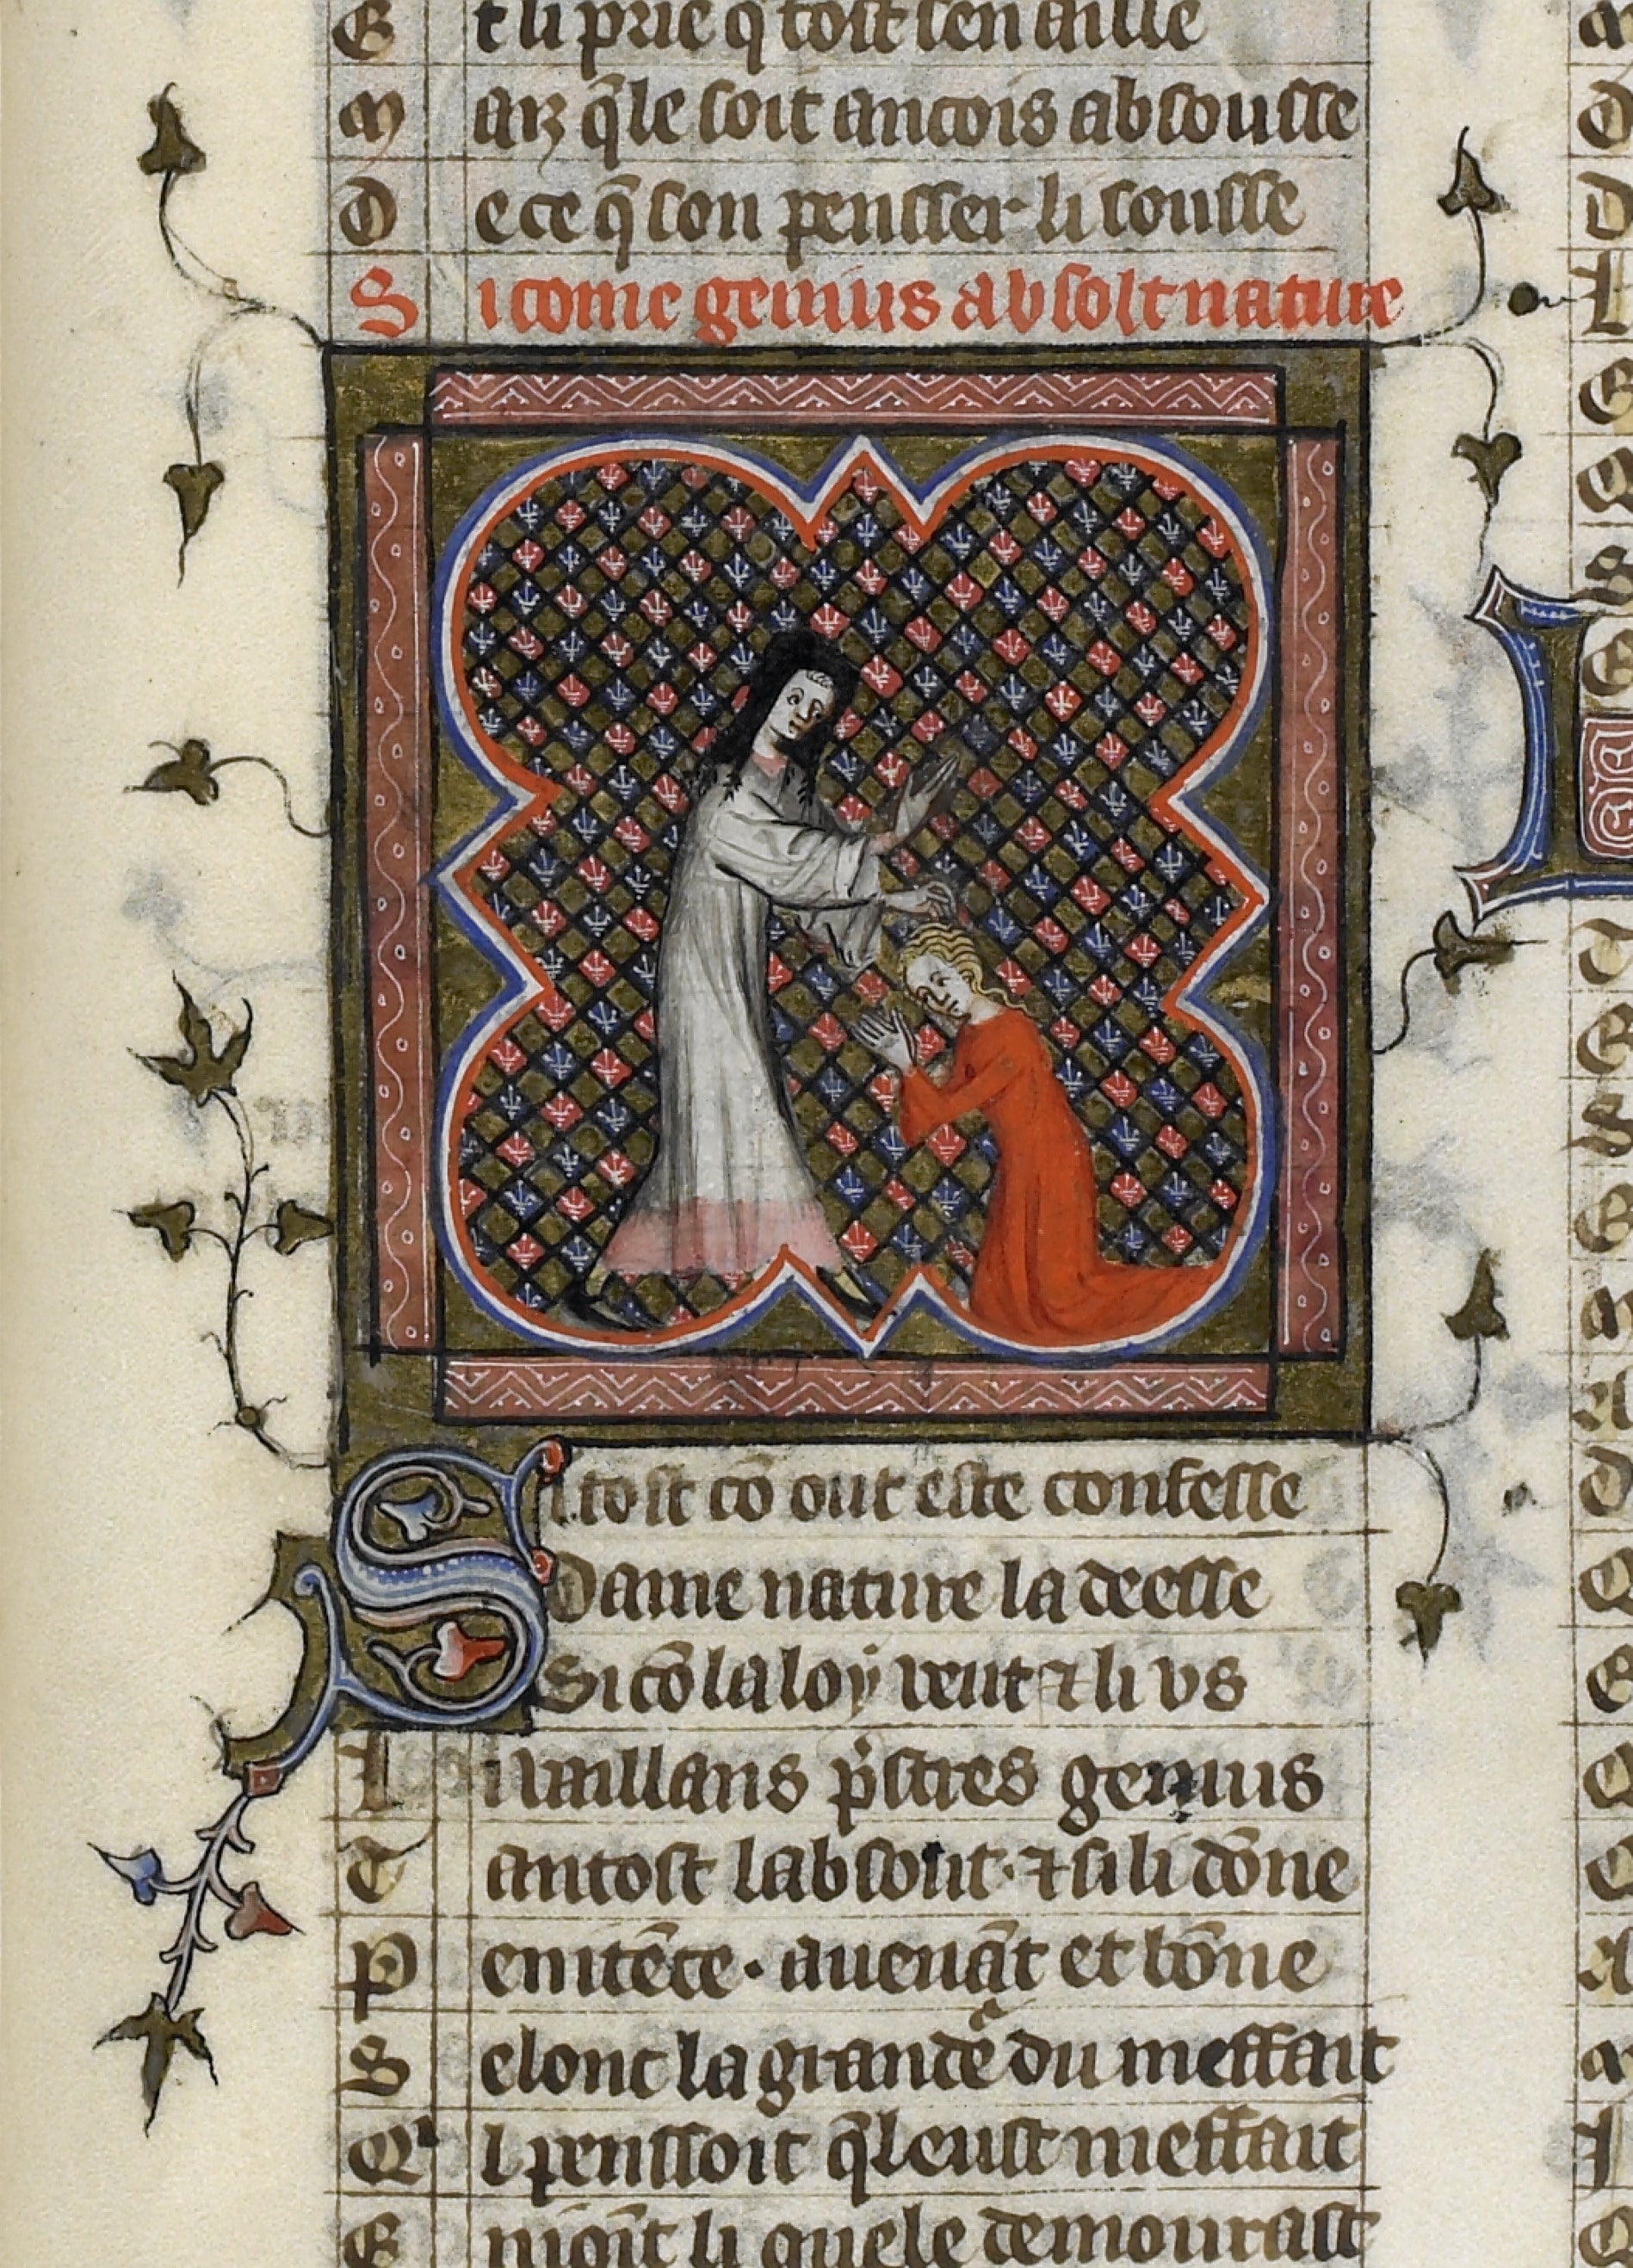 E t li prie q̃ tost sen aille
M ais q̃le soit ancois absousse
D e ce q̃ son pensser li cousse
S i come genius absolt nature
S i tost cõ out este confesse
Dame nature la deesse
Si cõ la loy veut ⁊ li vs
L i vaillans p̃stres genius
T antost labsout · ⁊ si li dõne
P enitẽce · auenãt et bõne
S elonc la grandeᷓ du meffait
Qͥ l penssoit q̃leust meffait
E nioĩt li quele demourast